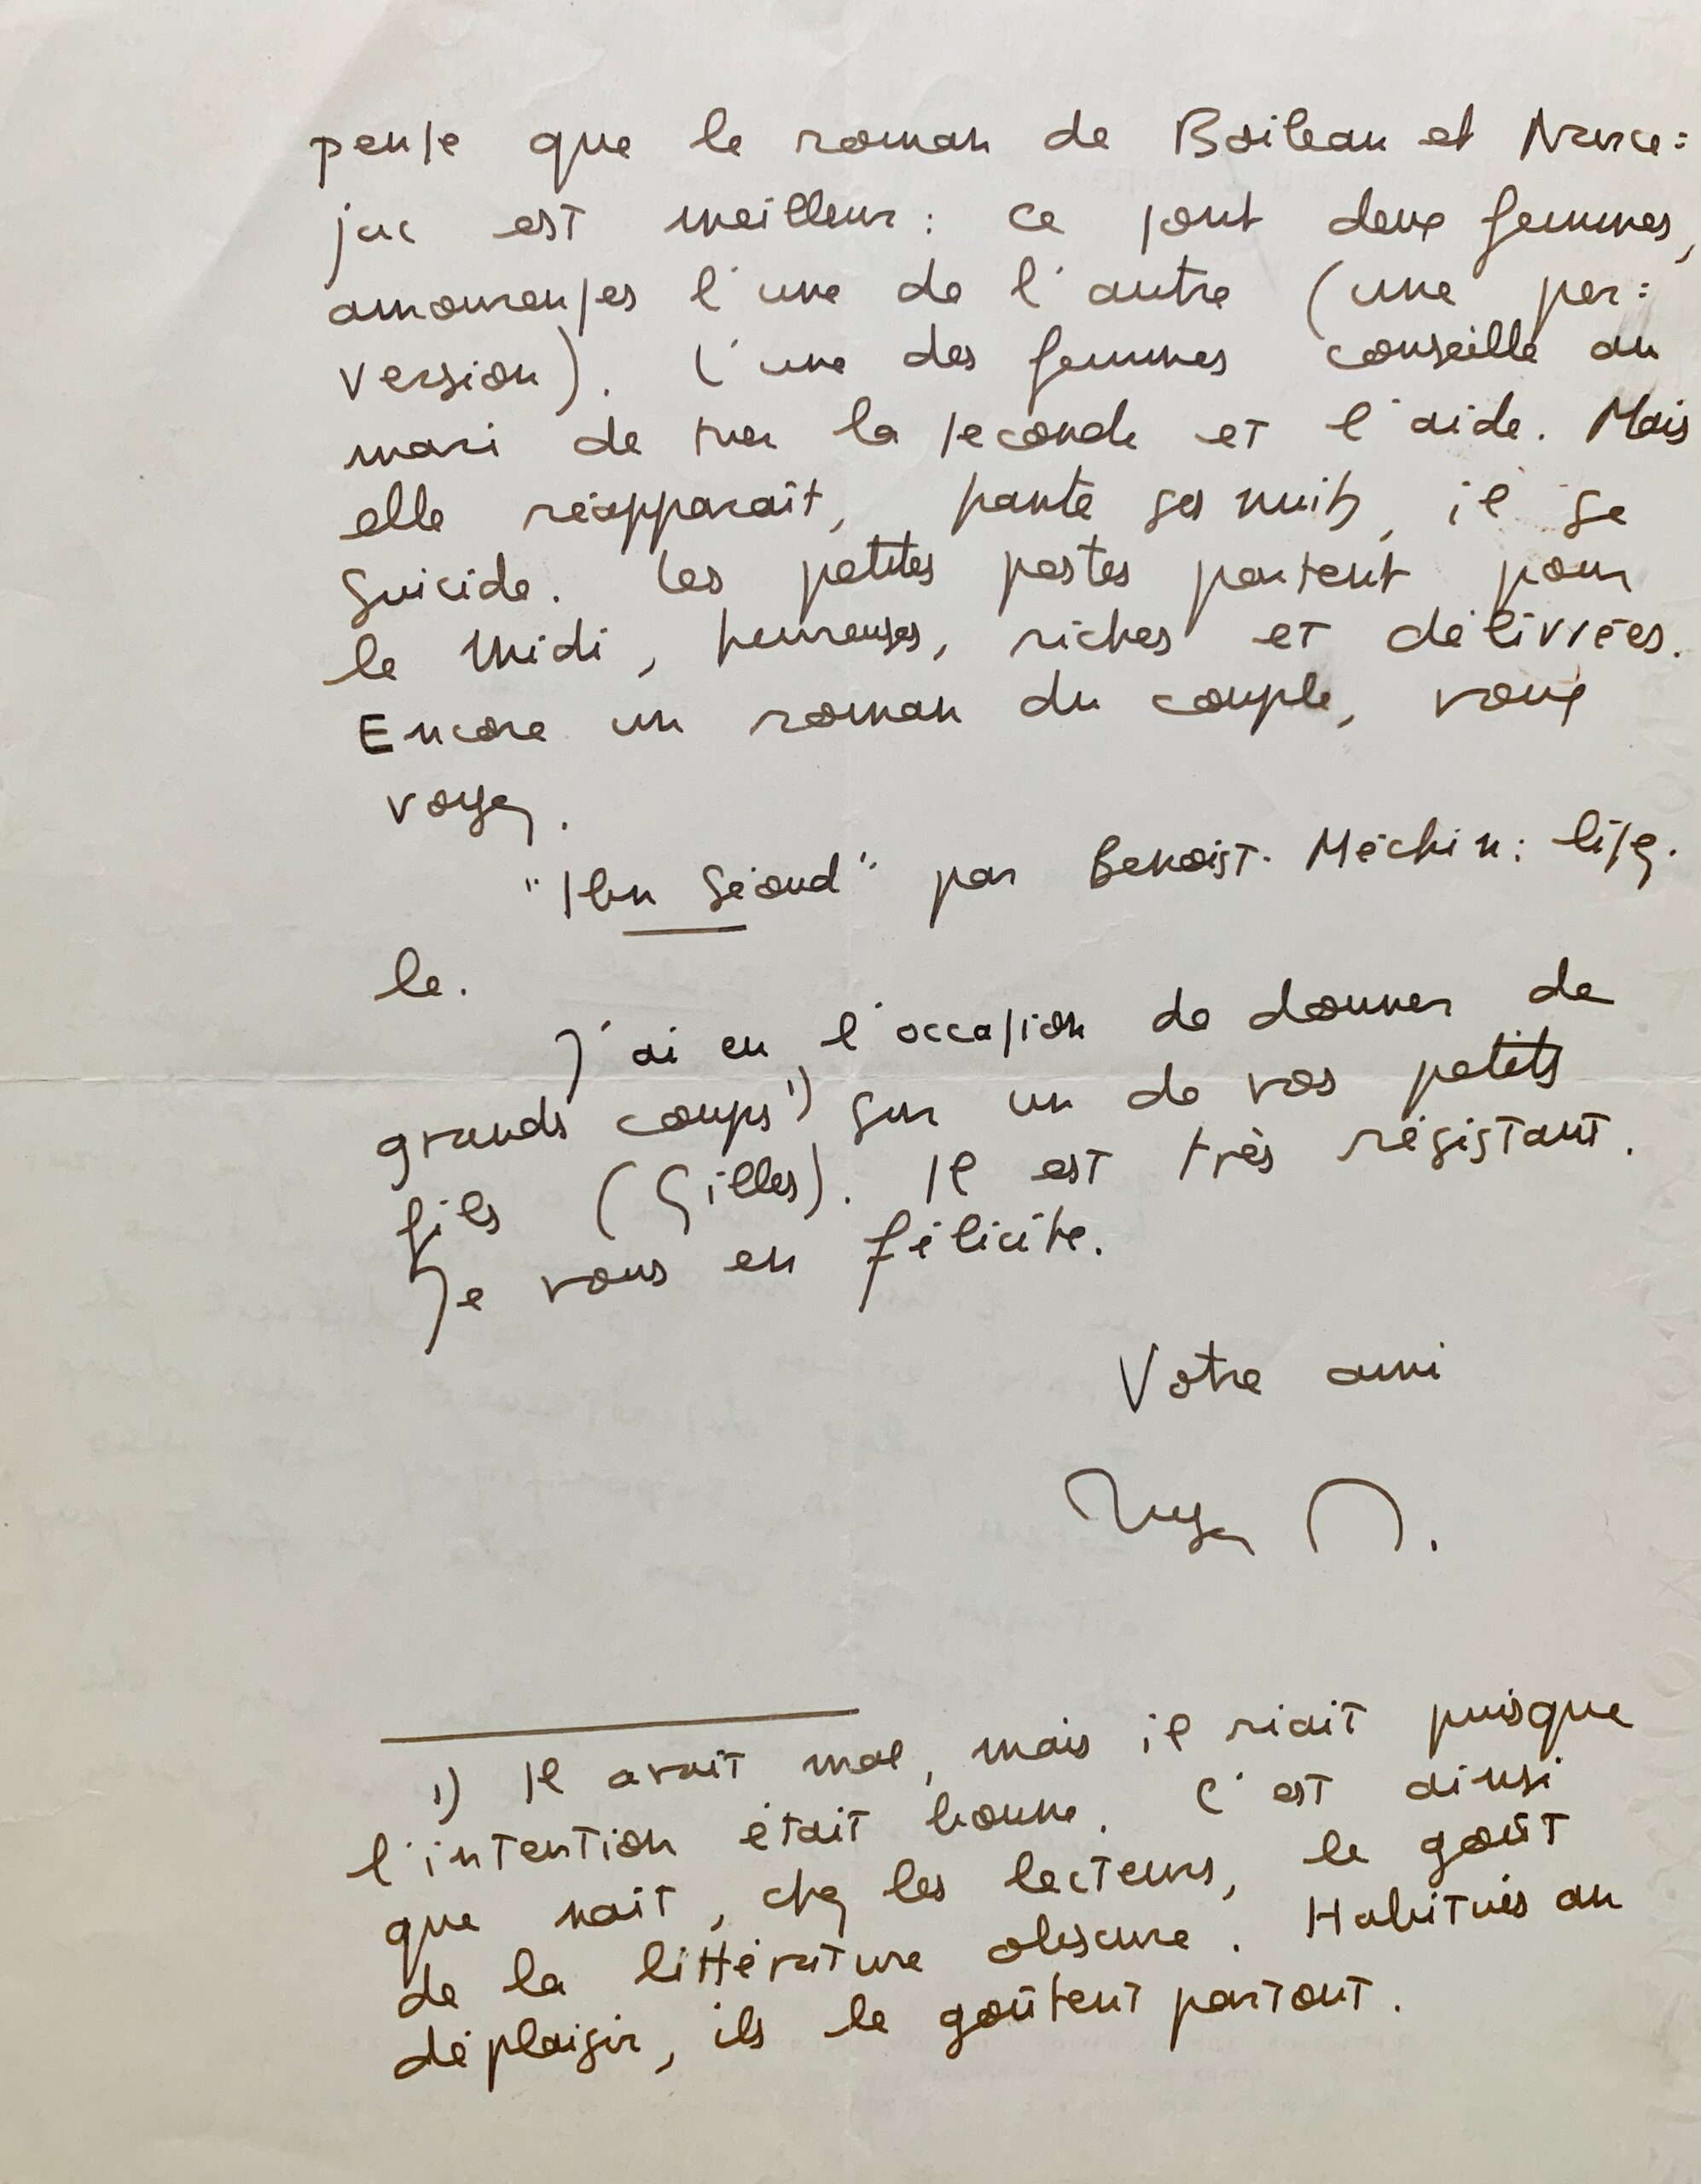 pense que le roman de Boileau et Narce=
jac est meilleur : ce sont deux femmes,
amoureuses l'une de l'autre (une per=
version). L'une des femmes conseille au
mari de tuer la seconde et l'aide. Mais
elle réapparaît, hante ses nuits, il se
suicide. Les petites pestes partent pour
le Midi, heureuses, riches et délivrées.
Encore un roman du couple, vous
voyez.
"Ibn Séoud" par Benoist-Méchin : lisez-
le.
J'ai eu l'occasion de donner de
grands coups 1) sur un de vos petits
fils (Gilles). Il est très résistant.
Je vous en félicite.
Votre ami
1) Il avait mal, mais il riait puisque
l'intention était bonne. C'est ainsi
que nait, chez les lecteurs, le goût
de la littérature obscure. Habitués au
déplaisir, ils le goûtent partout.